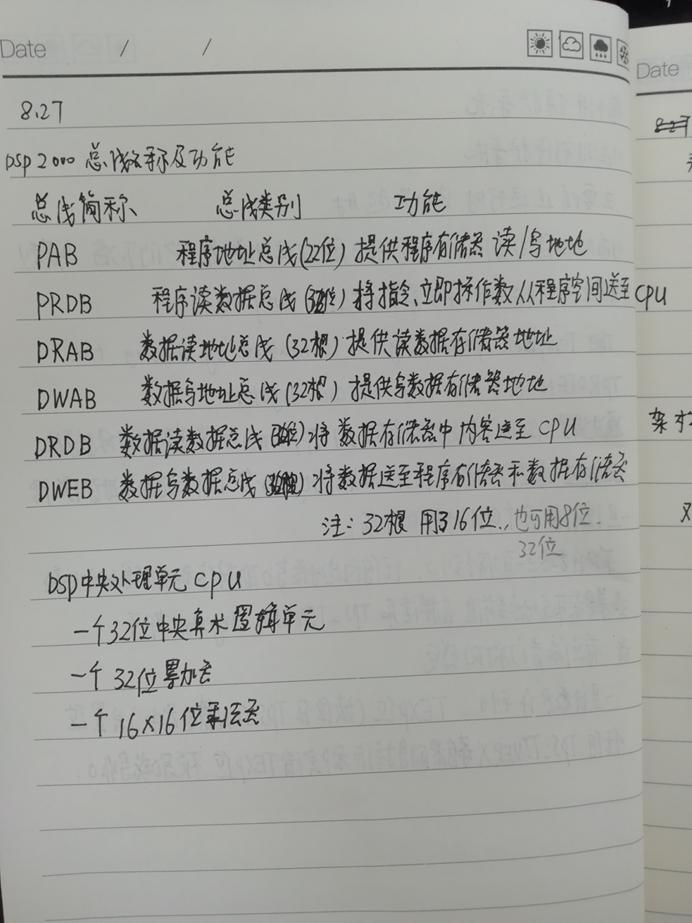 Date / /
8.27
DSP2000 总线名称及功能
总线简称 总线类别 功能
PAB 程序地址总线(22位) 提供程序存储器 读/写地址
PRDB 程序读数据总线(32位) 将指令、立即操作数从程序空间送至CPU
DRAB 数据读地址总线(32根) 提供读数据存储器地址
DWAB 数据写地址总线(32根) 提供写数据存储器地址
DRDB 数据读数据总线(32位)将数据存储器中内容送至CPU
DWEB 数据写数据总线(32位)将数据送至程序存储器和数据存储器
注: 32根 用了16位., 也可用8位.
32位
DSP中央处理单元CPU
一个32位中央算术逻辑单元
一个32位累加器
一个16×16位乘法器
Date
8.27